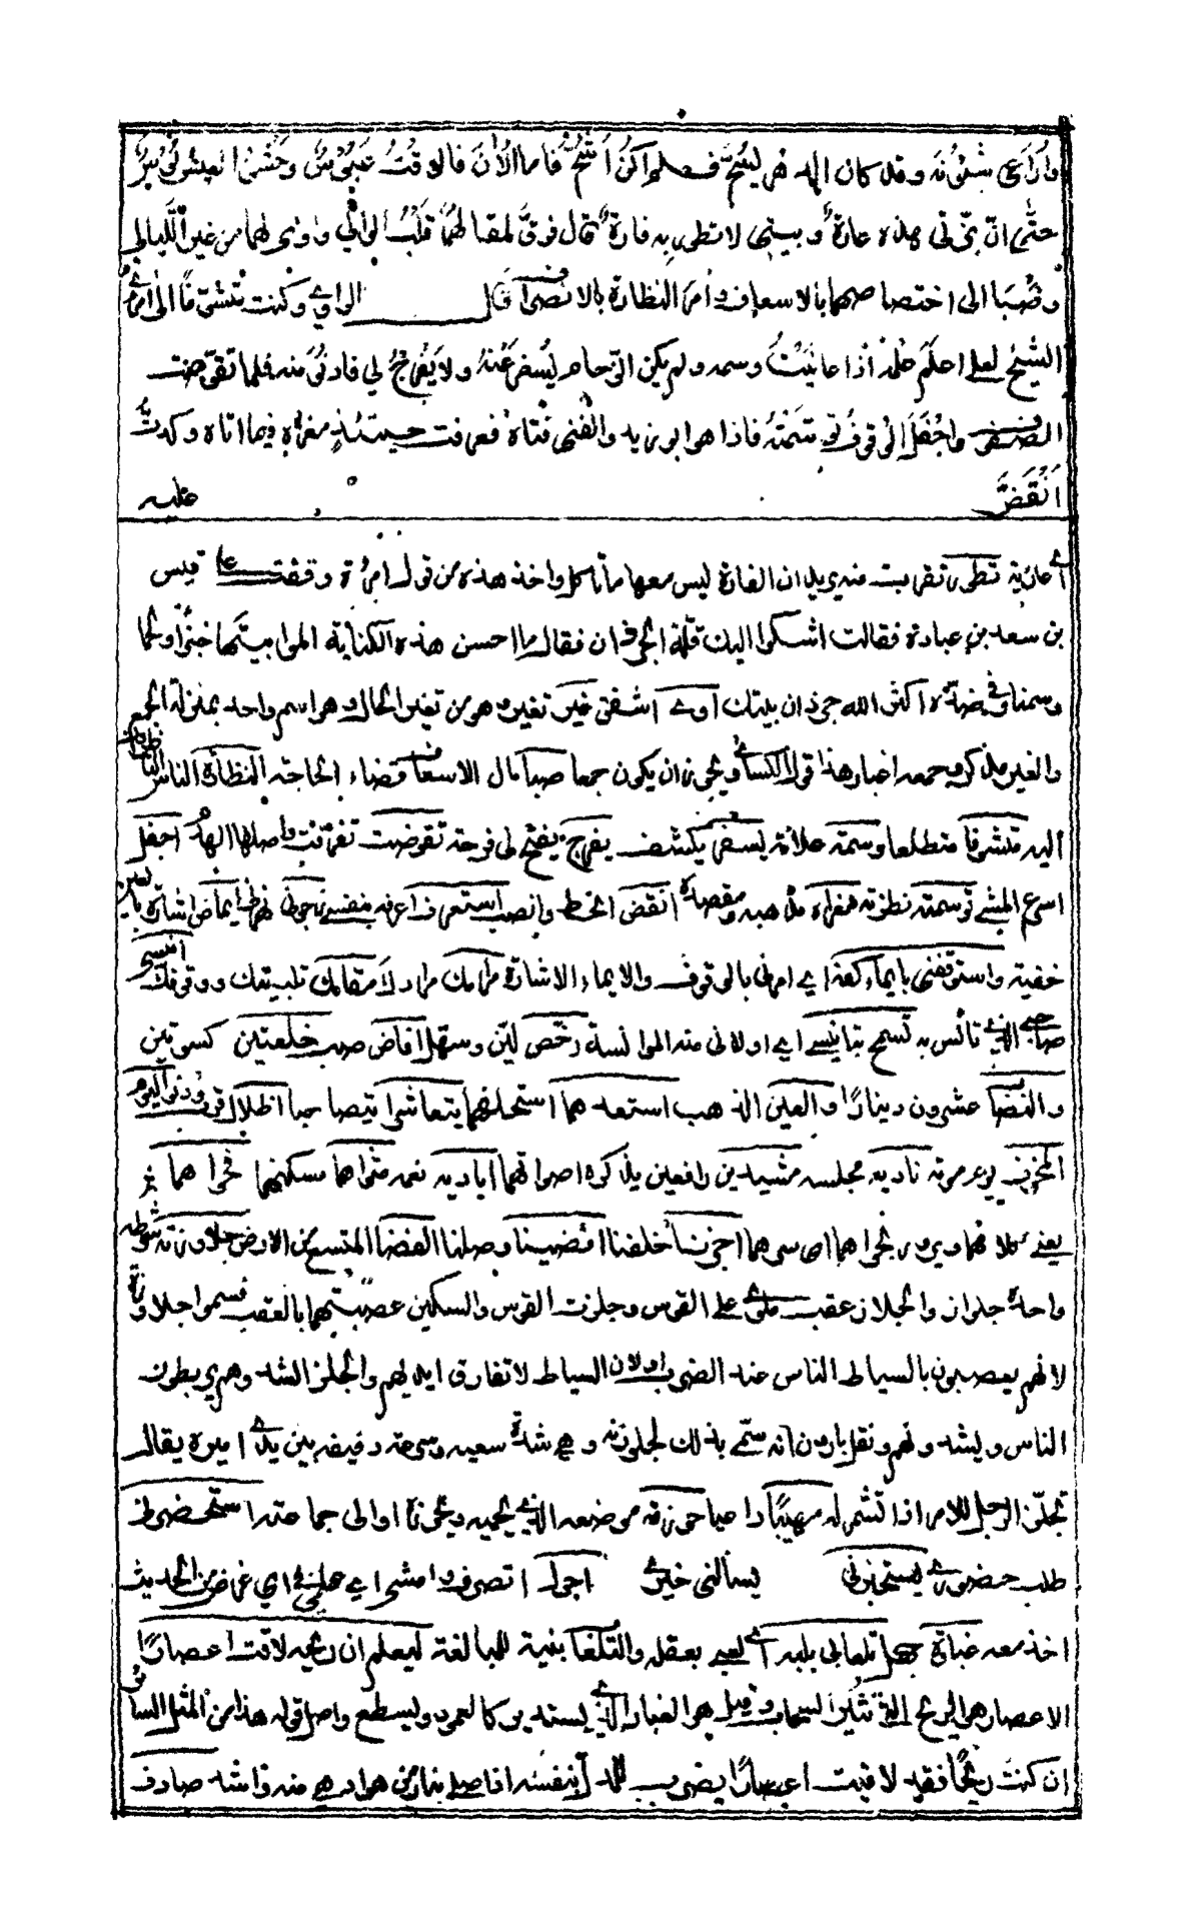 وارَاعى شئونه وقد كان الدهر ليشحّ فلم اكن اشحُّ فاما الآن فالوقت عبوس وحشوا العيش بوس
حتى ان بزّتي هذه عارة وبيتي لا تطور به فارة قال فرقّ لمقالهما قلب الوالي واوى لهما من غير الليالي
وصبا الى اختصاصهما بالاسعاف وامر النظارة بالانصراف قال الراوي وكنت متشوّقا الى مرأى
الشيخ لعلي اعلم علمه اذا عاينت وسمه ولم يكن الزحام ليسفر عنه ولا يفرج لي فادنو منه فلما تقوّضت
الصفوف واجفل الوقوف توسّمته فاذا هو ابو زيد والفتى فتاه فعرفت حينئذ مغزاه فيما اتاه وكدت
انقضّ عليه
اي عارية تطور تقربت منه يريد ان الفارة ليس معها ما تاكل واخذ هذه من قول امرأة وقفت على قيس
بن سعد بن عبادة فقالت اشكوا اليك قلة الجرذان فقال ما احسن هذه الكناية املوا بيتها خبزا ولحما
وسمنا وفضة اكثر الله جرذان بيتك اوى اشفق غير تغير وهو من تغير الحال وهو اسم واحد بمنزلة الجمع
والغير مذكر وجمعه اغيار هذا قول الكسائي ويجوز ان يكون جمعا صبا مال الاسعاف قضاء الحاجة النظارة الناس الناظرون
اليه متشوفا متطلعا وسمه علامته يسفر يكشف يفرج يفتح لي فرجة تقوضت تفرقت واصلها الهد اجفل
اسرع المشي توسمته نظرته مغزاه مذهبه ومقصده انقض انحط وانصب استعرف اعرفه بنفسي نزجرني نهرني ايماض اشارة بالعين
خفية واستوقفني بايماء كفه اي امرني بالوقوف والايماء الاشارة مرامك مرادك مقامك تلبيتك ووقوفك انيسى
صاحبي الذي تانس به تسمح بتانيسي اي اولاني منه الموانسة رخص ليّن وسهل افاض صب خلعتين كسوتين
والنضا عشرون دينارا والعين الذهب استعدهما استحلفهما يتعاشرا يتصاحبا اظلال قرب ودنو اليوم
المخوف يوم موته ناديه مجلسه مشيدين رافعين يذكره اصواتهما اياديه نعمه مثواهما سكنهما نجواهما سر
يعني كلامهما ويروى نجراهما اي سرهما اجزنا خلفنا افضينا وصلنا الفضا المتسع من الارض جلاوزته شرطه
واحده جلواز والجلاز عقب ملوي على القوس وجلزت القوس والسكين عصبتهما بالعقب فسموا جلاوزة
لانهم يعصبون بالسياط الناس عند الضرب اولان السياط لا تفارق ايديهم والجلز الشد وهم يربطون
الناس ويشدونهم ونقل بارون انه سمّي بذلك لجلوزته وهي شدة سعيه وسرعة دفيفه بين يدي اميره يقال
تجلّز الرجل للامر اذا تشمر له مهيبا داعيا حوزته موضعه الذي يحميه ويحوزه الوالي جماعته استحضر ني
طلب حضوري يستخبرني يسالني خبري اجول اتصرف وامشي اي عملي في اي غرض من الحديث
اخذ معه غباوة جهل تلعابي بلبه اي لعبي بعقله والتلعابنية للمبالغة ليعلم ان ريحه لاقت اعصارا
الاعصار هو الريح التي تثير السحاب وقيل هو الغبار الذي يستدير كالعمود ويسطع واصل قوله هذا من المثل السائر
ان كنت ريحا فقد لاقيت اعصارا يضرب للمدلّ بنفسه اذا صلي بنار من هو ادهى منه واشد صادف